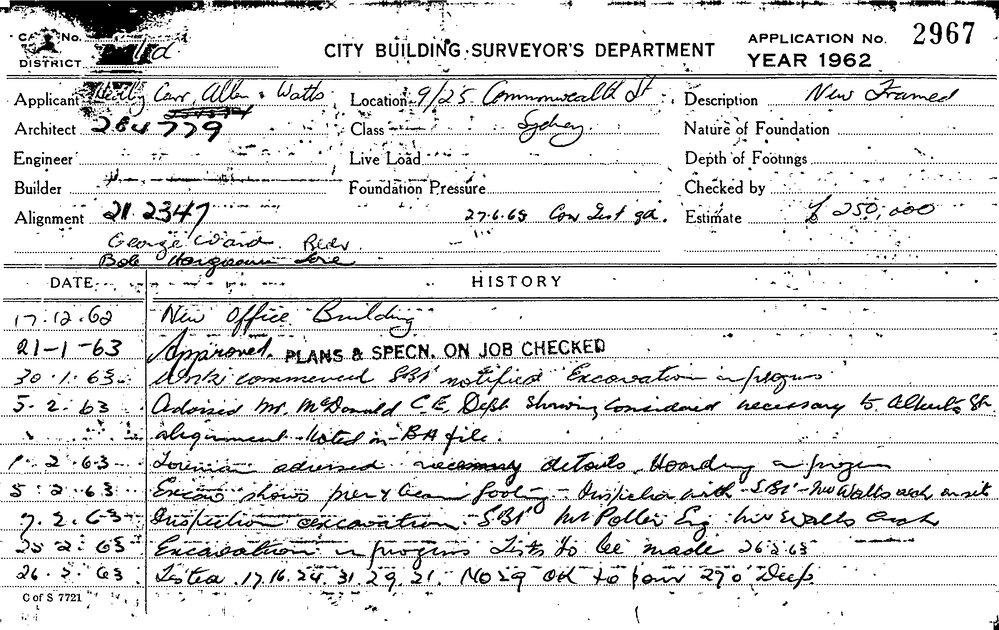 CARD No.
DISTRICT
CITY BUILDING SURVEYOR'S DEPARTMENT
APPLICATION No. 2967
YEAR 1962
Applicant Carr, Allen & Watts
Location 9/25 Commonwealth St
Description New Framed
Architect 264779
Class Sydney
Nature of Foundation
Engineer
Live Load
Depth of Footings
Builder
Foundation Pressure
Checked by
Alignment 21 2347
27.6.63
Estimate £ 250,000
George Ward
Bob
DATE
HISTORY
17.12.62 New Office Building
21-1-63 Approved. PLANS & SPECN. ON JOB CHECKED
30.1.63 Work commenced SBI notified Excavation in progress
5.2.63 Advised Mr. McDonald C.E. Dept Shoring considered necessary to Alberta St.
alignment. Noted in BA file.
2.63 Foreman advised necessary details. Hoarding in progress
5.2.63 Excav shows pier & beam footing - Inspection with SBI - Mr Watts arch on site
7.2.63 Inspection excavation. SBI Mr Eng Mr Watts Arch
25.2.63 Excavation in progress Tests to be made 26.2.63
26.2.63 Tested 17.16.24.31.29.21. No 29 OK to pour 27'0 Deep
C of S 7721